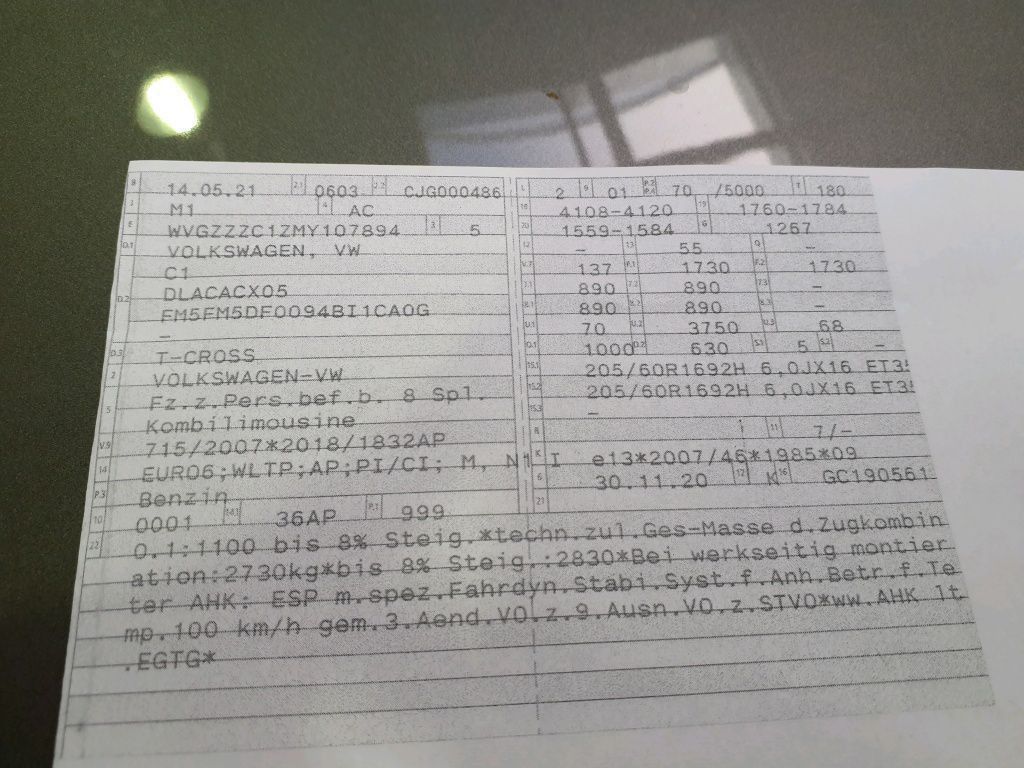 B 14.05.21 2.1 0603 2.2 CJG000486
J M1 4 AC
E WVGZZZC1ZMY107894 3 5
D.1 VOLKSWAGEN, VW
C1
D.2 DLACACX05
FM5FM5DF0094BI1CA0G
–
D.3 T-CROSS
2 VOLKSWAGEN-VW
5 Fz.z.Pers.bef.b. 8 Spl.
Kombilimousine
V.9 715/2007*2018/1832AP
14 EURO6;WLTP;AP;PI/CI; M, N1 I
P.3 Benzin
10 0001 14.1 36AP P.1 999
L 2 9 01 P.2 P.4 70 /5000 T 180
18 4108-4120 19 1760-1784
20 1559-1584 G 1267
12 – 13 55 Q –
V.7 137 F.1 1730 F.2 1730
7.1 890 7.2 890 7.3 –
8.1 890 8.2 890 8.3 –
U.1 70 U.2 3750 U.3 68
O.1 1000 O.2 630 S.1 5 S.2 –
15.1 205/60R1692H 6,0JX16 ET3
15.2 205/60R1692H 6,0JX16 ET3
15.3 –
R 11 7/–
K e13*2007/46*1985*09
6 30.11.20 17 K 16 GC190561
21
22 O.1:1100 bis 8% Steig.*techn.zul.Ges-Masse d.Zugkombin
ation:2730kg*bis 8% Steig.:2830*Bei werkseitig montier
ter AHK: ESP m.spez.Fahrdyn.Stabi.Syst.f.Anh.Betr.f.Te
mp.100 km/h gem.3.Aend.VO.z.9.Ausn.VO.z.STVO*ww.AHK lt
.EGTG*